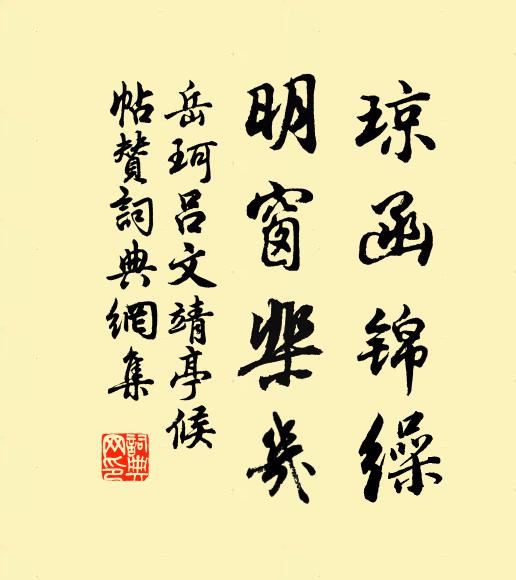 琼函锦缲
明窗棐几
岳珂吕文靖亭候
帖赞词典網集
詞典網印